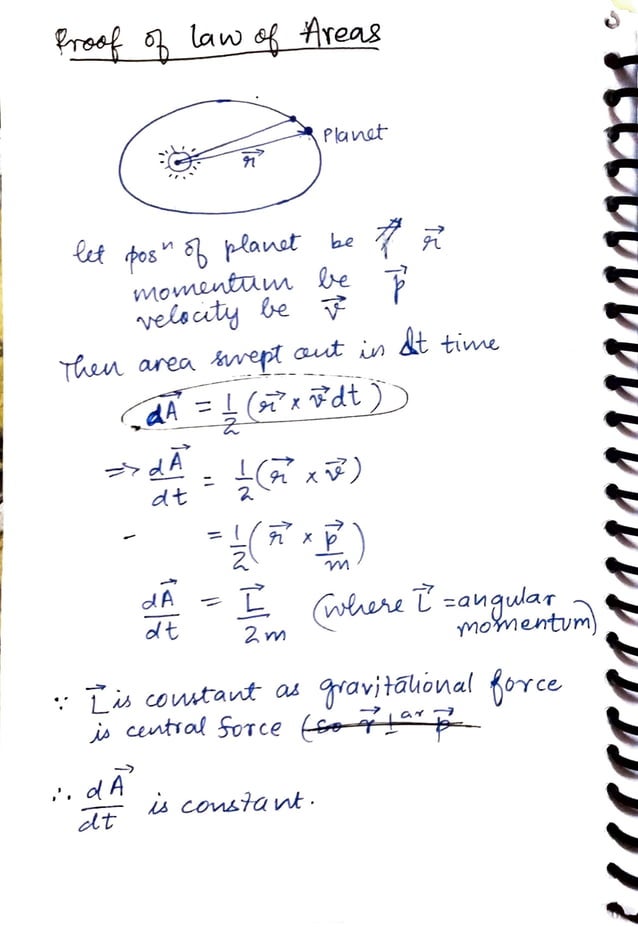 Proof of law of Areas
Planet
r⃗
let posⁿ of planet be r⃗
momentum be p⃗
velocity be v⃗
Then area swept out in Δt time
dA⃗ = 1/2 (r⃗ × v⃗ dt)
⇒ dA⃗/dt = 1/2 (r⃗ × v⃗)
- = 1/2 (r⃗ × p⃗/m)
dA⃗/dt = L⃗/2m (where L⃗ = angular
momentum)
∵ L⃗ is constant as gravitational force
is central force (so r⃗ ⊥ar p⃗
∴ dA⃗/dt is constant.